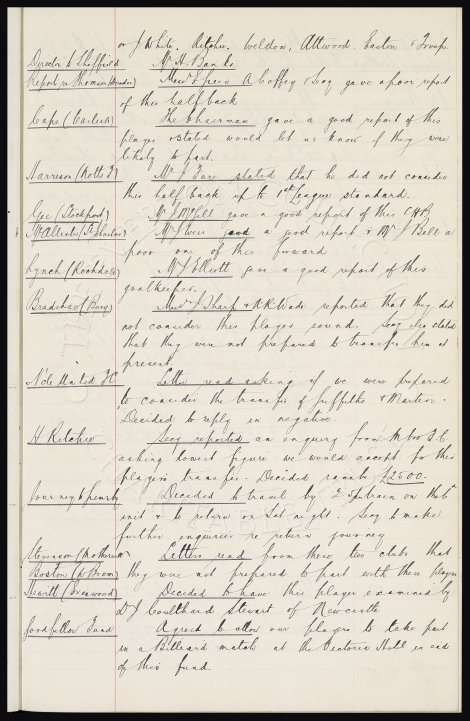 or J White, Ritchie, Weldon, Attwood, Easton & Troup
Director to Sheffield Mr H. Banks
Report re Thomson (Dundee) Messrs Green A Coffey & Secy gave a poor report
of this half back
Cape (Carlisle) The Chairman gave a good report of this
player & stated would let us know if they were
likely to part.
Harrison (Notts F) Mr J Fare stated that he did not consider
this half back up to 1st League standard.
Gee (Stockport) Mr J McGill gave a good report of this CHB
McAllister (St Mirren) Mr a good report & Mr J Bell a
poor one of this forward
Lynch (Rochdale) Mr J Elliott gave a good report of this
goalkeeper.
Bradshaw (Bury) Messrs J Sharp & R R Wade reported that they did
not consider this player sound. Secy also stated
that they were not prepared to transfer him at
present
N'cle United FC Letter read asking if we were prepared
to consider the transfer of Griffiths & Martin.
Decided to reply in negative.
H Ritchie Secy reported an enquiry from F.C
asking lowest figure we would accept for this
player's transfer. Decided £2500.
Journey to Decided to travel by train on the 6th
inst & to return on Sat night. Secy to make
further enquiries re return journey
Stevenson (Motherwell) Letters read from these two clubs that
Boston (W Brom) they were not prepared to part with these players
Hewitt Decided to have this player examined by
Dr J Coulthard Stewart of Newcastle
Goodfellow Fund Agreed to allow our players to take part
in a Billiard match at the Victoria Hotel in aid
of this fund.